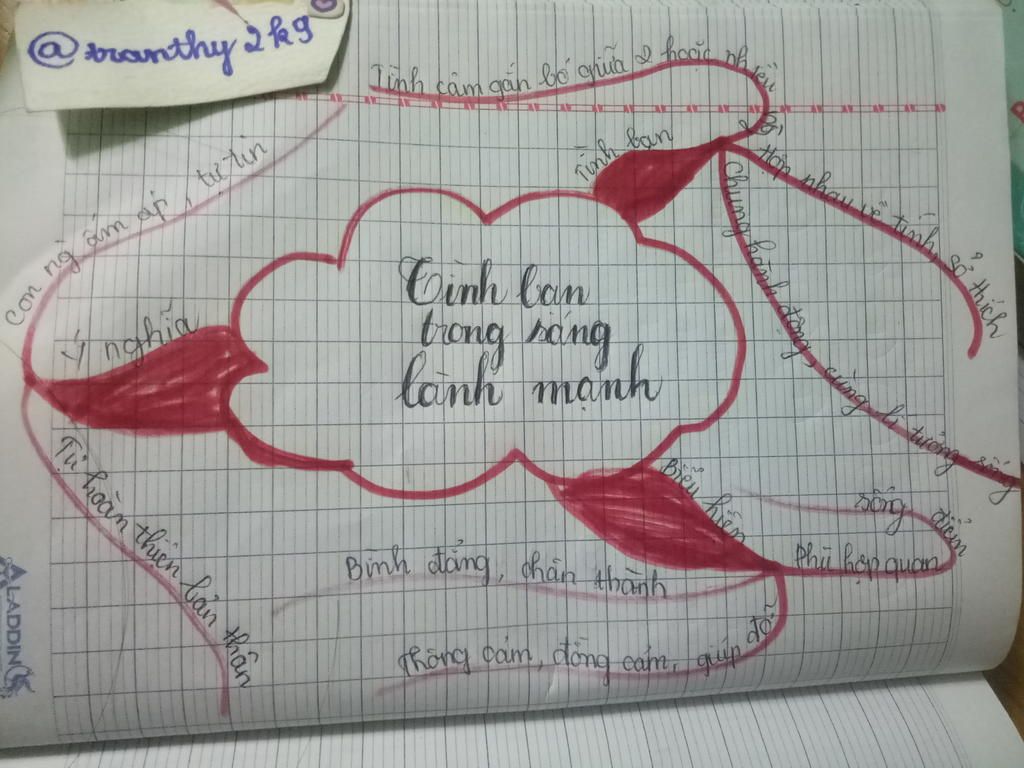 @tranthy2k9
Tình cảm gắn bó giữa 2 hoặc nhiều
Tình bạn
Hợp nhau về tính, sở thích
Chung hành động, cùng lí tưởng sống
Tình bạn
trong sáng
lành mạnh
Con ng ấm áp, tự tin
Ý nghĩa
Tự hoàn thiện bản thân
Biểu hiện
Phù hợp quan
điểm
sống
Bình đẳng, chân thành
Thông cảm, đồng cảm, giúp đỡ
ALADDIN